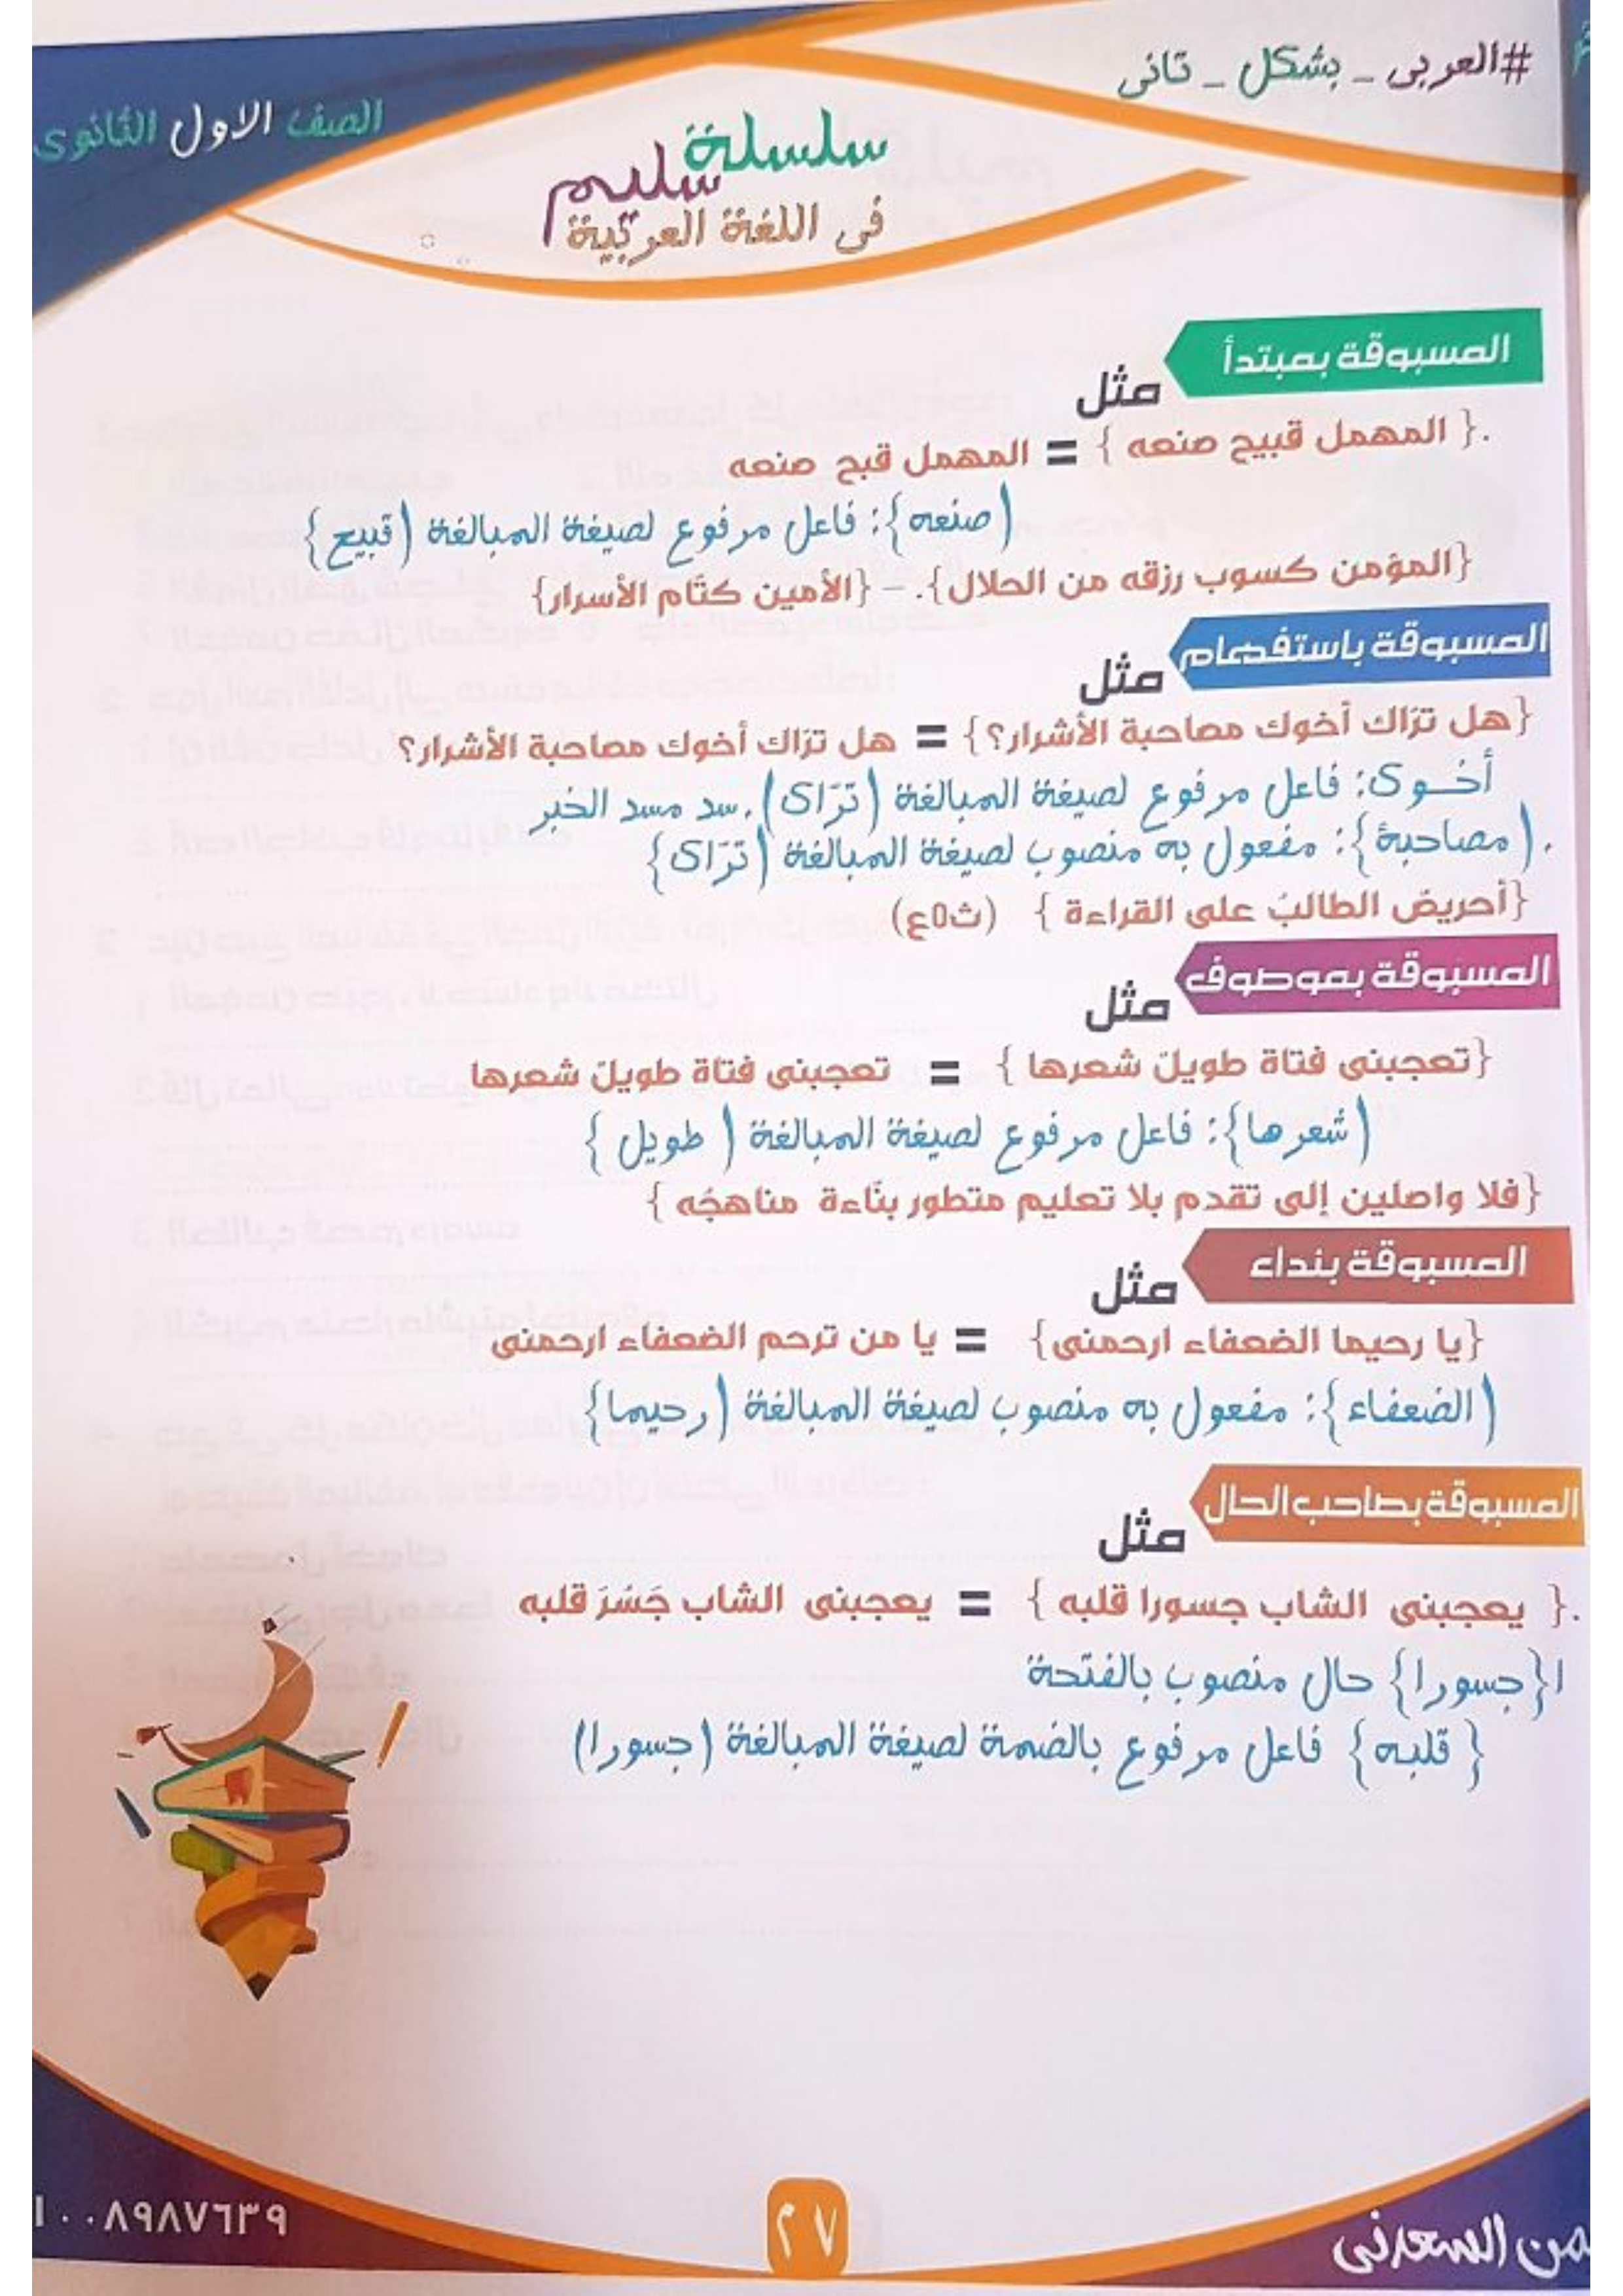 #العربى _ بشكل _ تانى
الصف الاول الثانوى
سلسلة
سليم
فى اللغة العربية
المسبوقة بمبتدأ
مثل
.{ المهمل قبيح صنعه } = المهمل قبح صنعه
(صنعه}: فاعل مرفوع لصيغة المبالغة (قبيح}
{المؤمن كسوب رزقه من الحلال}. – {الأمين كتّام الأسرار}
المسبوقة باستفهام
مثل
{هل ترّاك أخوك مصاحبة الأشرار؟} = هل ترّاك أخوك مصاحبة الأشرار؟
أخوك: فاعل مرفوع لصيغة المبالغة (ترّاك). سد مسد الخبر
.(مصاحبة}: مفعول به منصوب لصيغة المبالغة (ترّاك}
{أحريض الطالبُ على القراءة } (ث٥ع)
المسبوقة بموصوف
مثل
{تعجبنى فتاة طويلٌ شعرها } = تعجبنى فتاة طويلٌ شعرها
(شعرها}: فاعل مرفوع لصيغة المبالغة ( طويل }
{فلا واصلين إلى تقدم بلا تعليم متطور بنّاءة مناهجُه }
المسبوقة بنداء
مثل
{يا رحيما الضعفاء ارحمنى} = يا من ترحم الضعفاء ارحمنى
(الضعفاء}: مفعول به منصوب لصيغة المبالغة (رحيما}
المسبوقة بصاحب الحال
مثل
.{ يعجبنى الشاب جسورا قلبه } = يعجبنى الشاب جَسُرَ قلبه
ا{جسورا} حال منصوب بالفتحة
{ قلبه} فاعل مرفوع بالضمة لصيغة المبالغة (جسورا)
١٠٠٨٩٨٧٦٣٩
٢٧
السعدنى